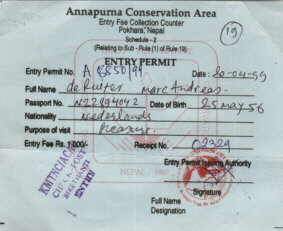 Annapurna Conservation Area
Entry Fee Collection Counter
Pokhara, Nepal
19
Schedule - 2
(Relating to Sub - Rule (1) of Rule-19)
ENTRY PERMIT
Entry Permit No. A 8850/99 Date: 20-04-99
Full Name de Ruiter Marc Andreas.
Passport No. N22894042 Date of Birth 25 May 56
Nationality Nederlands
Purpose of visit Pleasure
Entry Fee Rs. 1,000/- Receipt No. 02329
Entry Permit Issuing Authority
NEPAL
ENTRY
Signature
Full Name
Designation